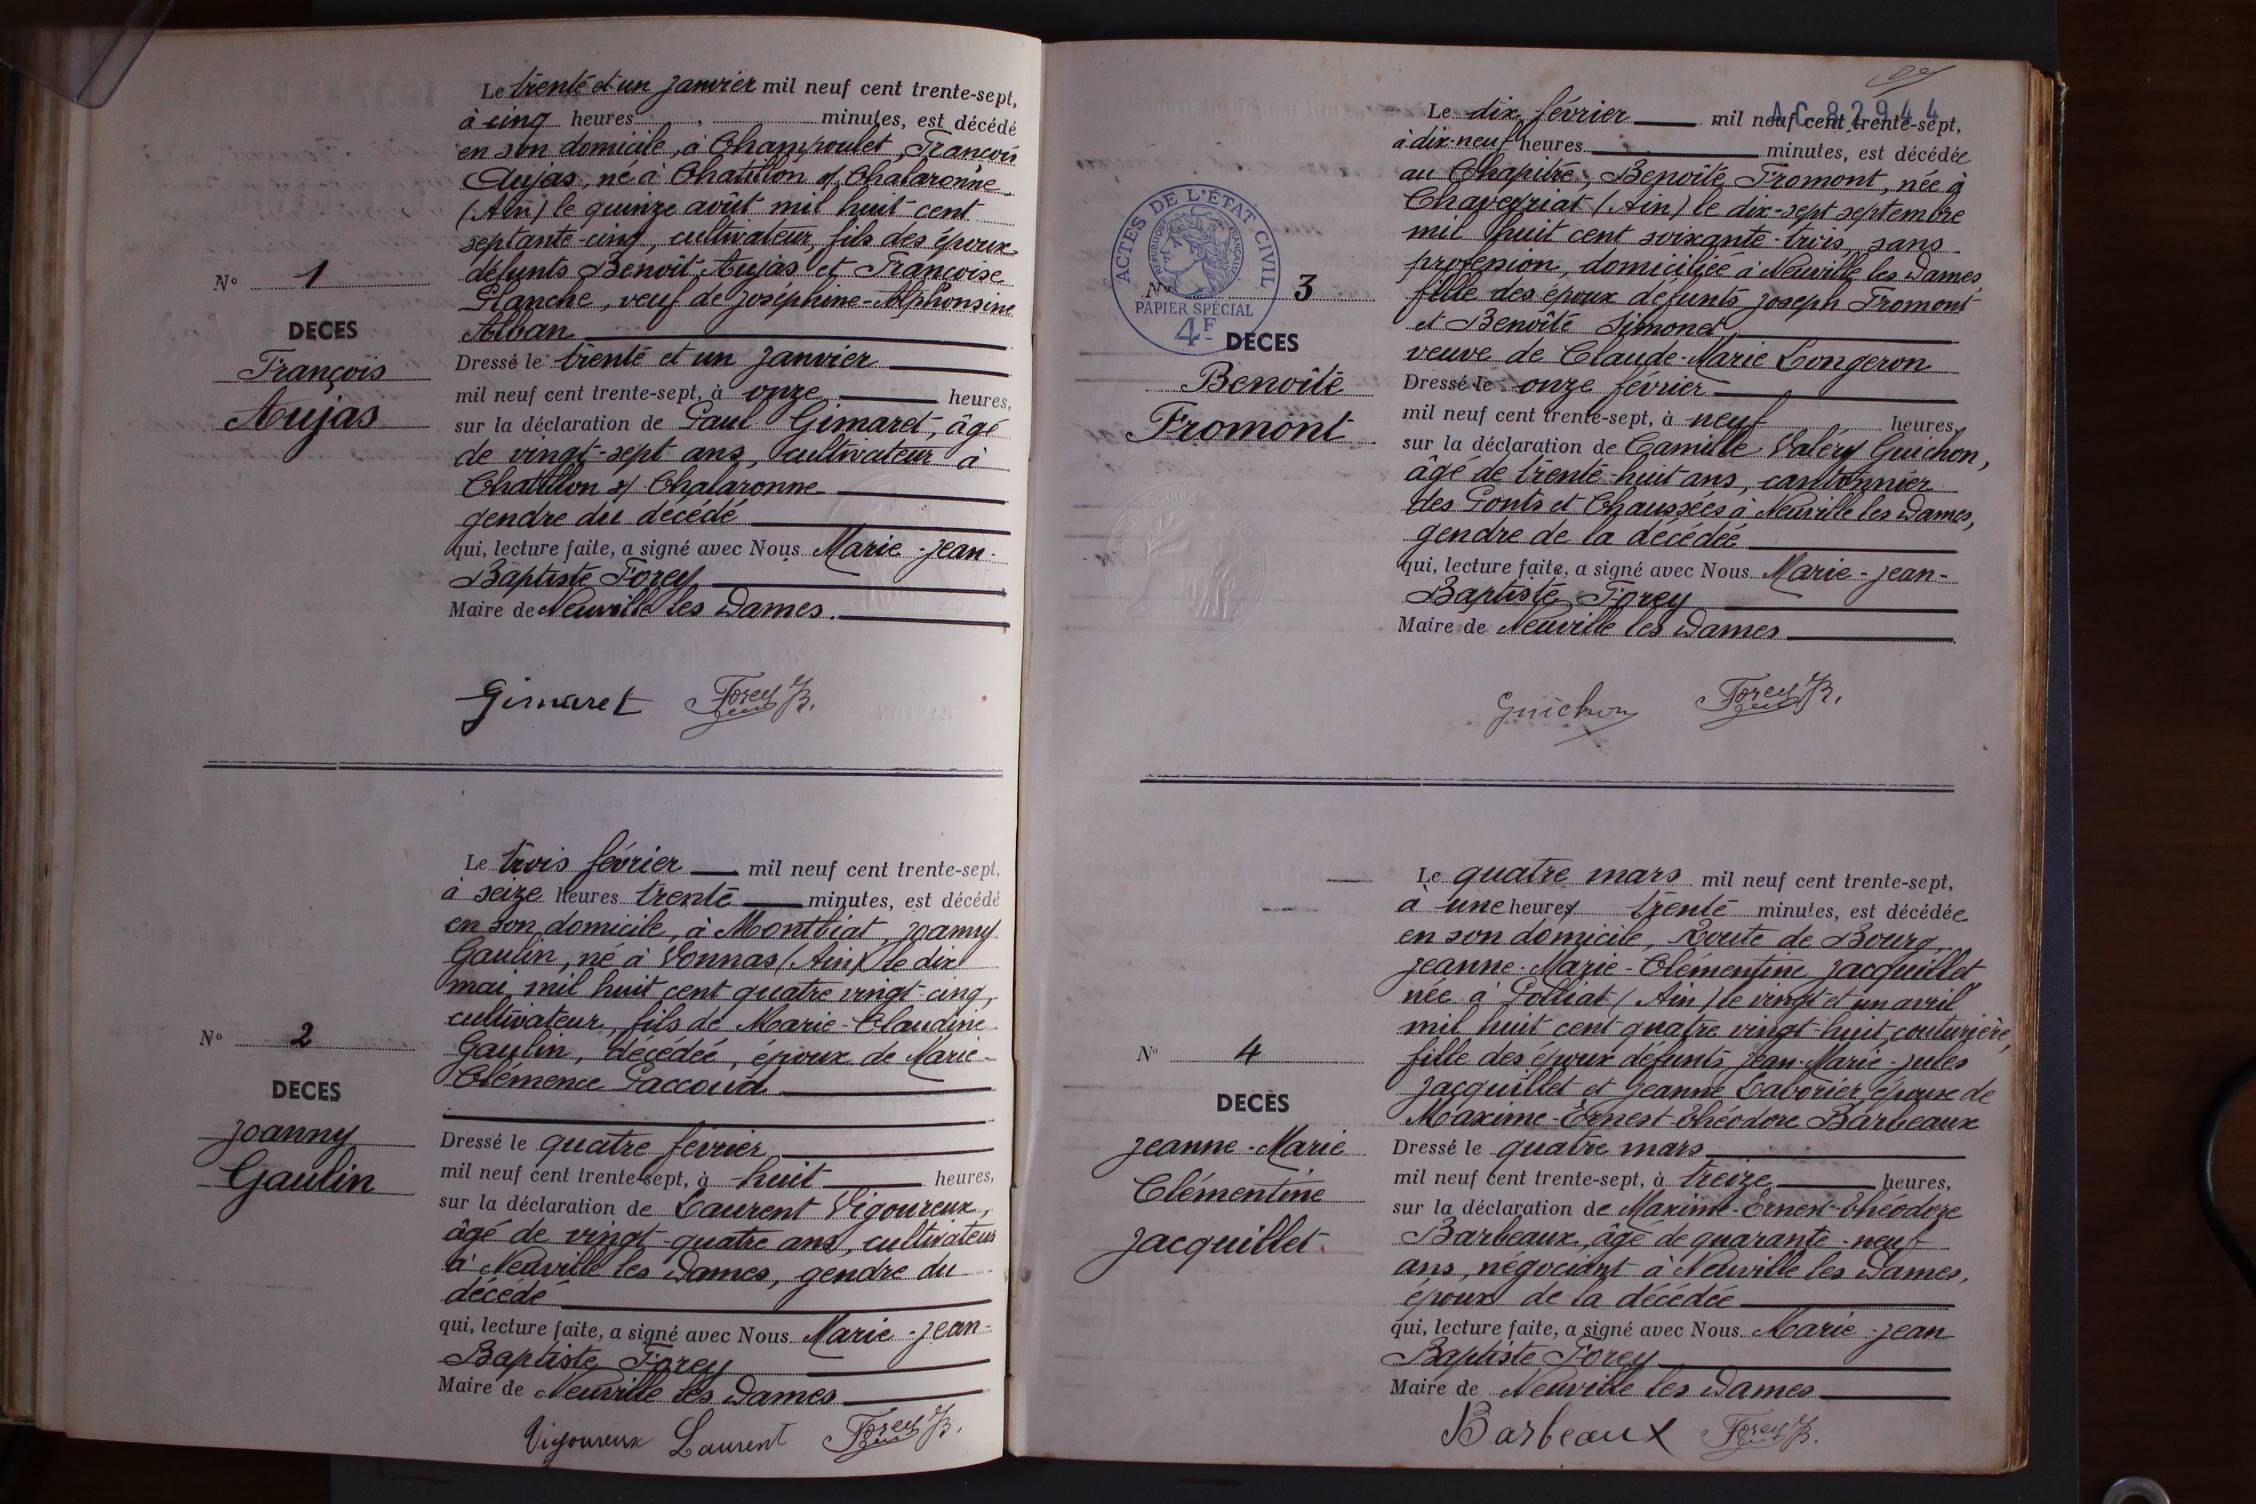 Le trente et un janvier mil neuf cent trente-sept,
à cinq heures , minutes, est décédé
en son domicile, à Champoulet, François
Aujas, né à Chatillon s/ Chalaronne
(Ain) le quinze août mil huit cent
septante-cinq, cultivateur, fils des époux
défunts Benoit Aujas et Françoise
Planche, veuf de Joséphine-Alphonsine
Alban
N° 1
DECES
François
Aujas
Dressé le trente et un janvier
mil neuf cent trente-sept, à onze heures,
sur la déclaration de Paul Gimaret, âgé
de vingt-sept ans, cultivateur à
Chatillon s/ Chalaronne
gendre du décédé
qui, lecture faite, a signé avec Nous Marie-Jean-
Baptiste Forey
Maire de Neuville les Dames.
Gimaret Forey JB.
Le trois février mil neuf cent trente-sept,
à seize heures trente minutes, est décédé
en son domicile, à Monthiat, Joanny
Gaulin, né à Vonnas (Ain) le dix
mai mil huit cent quatre vingt-cinq,
cultivateur, fils de Marie-Claudine
Gaulin, décédée, époux de Marie-
Clémence Paccoud
N° 2
DECES
Joanny
Gaulin
Dressé le quatre février
mil neuf cent trente-sept, à huit heures,
sur la déclaration de Laurent Vigoureux,
âgé de vingt-quatre ans, cultivateur
à Neuville les Dames, gendre du
décédé
qui, lecture faite, a signé avec Nous Marie-Jean-
Baptiste Forey
Maire de Neuville les Dames
Vigoureux Laurent Forey JB.
AC 82944
Le dix février mil neuf cent trente-sept,
à dix-neuf heures minutes, est décédée
au Chapitre, Benoîte Fromont, née à
Chaveyriat (Ain) le dix-sept septembre
mil huit cent soixante-trois, sans
profession, domiciliée à Neuville les Dames,
fille des époux défunts Joseph Fromont
et Benoîte Simonet,
veuve de Claude-Marie Longeron
ACTES DE L'ÉTAT CIVIL
RÉPUBLIQUE FRANÇAISE
PAPIER SPÉCIAL
4F
N° 3
DECES
Benoîte
Fromont
Dressé le onze février
mil neuf cent trente-sept, à neuf heures,
sur la déclaration de Camille-Valéry Guichon,
âgé de trente-huit ans, cantonnier
des Ponts et Chaussées à Neuville les Dames,
gendre de la décédée
qui, lecture faite, a signé avec Nous Marie-Jean-
Baptiste Forey
Maire de Neuville les Dames
Guichon Forey JB.
Le quatre mars mil neuf cent trente-sept,
à une heures trente minutes, est décédée
en son domicile, Route de Bourg,
Jeanne-Marie-Clémentine Jacquillet
née à Polliat (Ain) le vingt et un avril
mil huit cent quatre vingt-huit, couturière,
fille des époux défunts Jean-Marie-Jules
Jacquillet et Jeanne Laborier, épouse de
Maxime-Ernest-Théodore Barbeaux
N° 4
DECÈS
Jeanne-Marie
Clémentine
Jacquillet
Dressé le quatre mars
mil neuf cent trente-sept, à treize heures,
sur la déclaration de Maxime-Ernest-Théodore
Barbeaux, âgé de quarante-neuf
ans, négociant à Neuville les Dames,
époux de la décédée
qui, lecture faite, a signé avec Nous Marie-Jean
Baptiste Forey
Maire de Neuville les Dames
Barbeaux Forey JB.